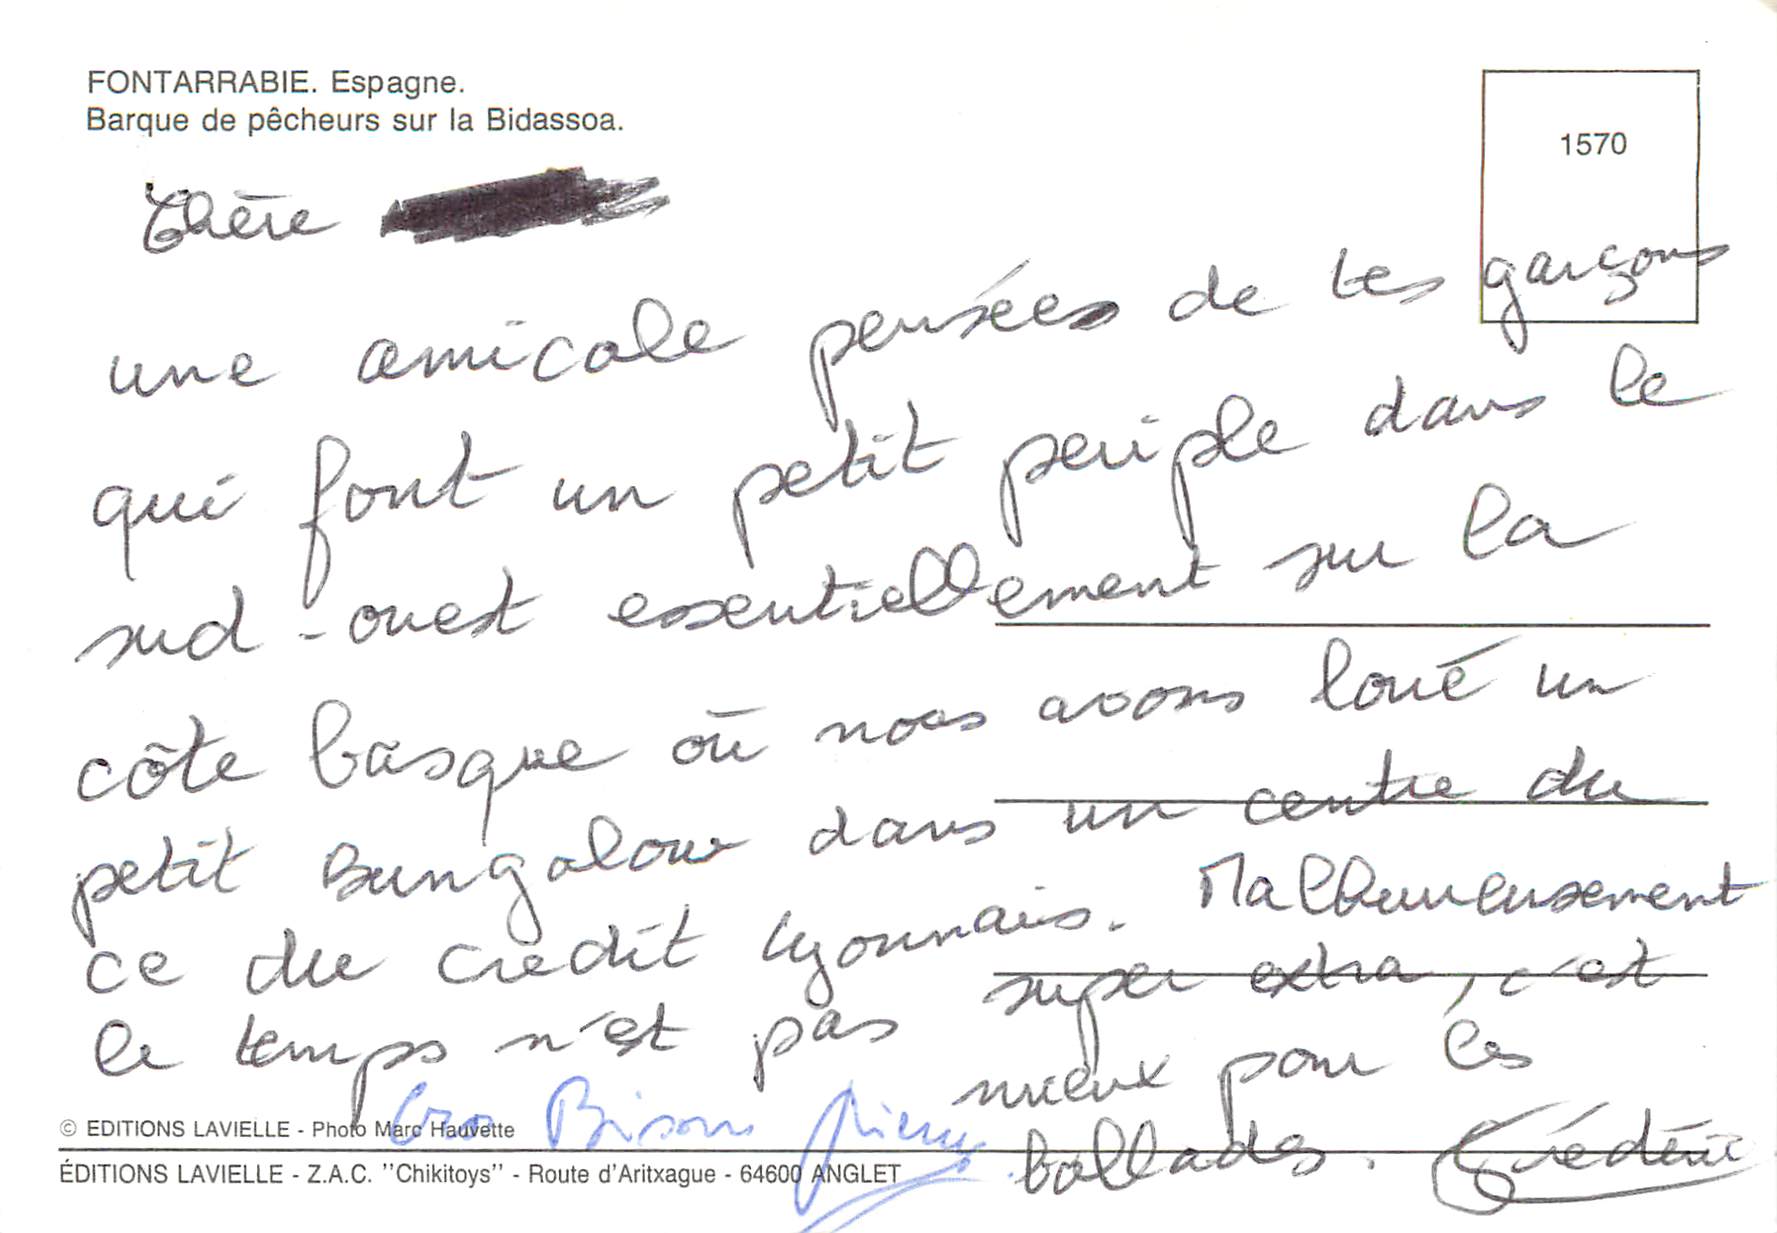 FONTARRABIE. Espagne.
Barque de pêcheurs sur la Bidassoa.
1570
Chère
une amicale pensées de tes garçons
qui font un petit periple dans le
sud-ouest essentiellement sur la
côte basque où nous avons loué un
petit Bungalow dans un centre du
ce du crédit Lyonnais. Malheureusement
le temps n'est pas super extra, c'est
mieux pour les
ballades. Frédéric
Gros Bisous Pierre
© EDITIONS LAVIELLE - Photo Marc Hauvette
ÉDITIONS LAVIELLE - Z.A.C. "Chikitoys" - Route d'Aritxague - 64600 ANGLET